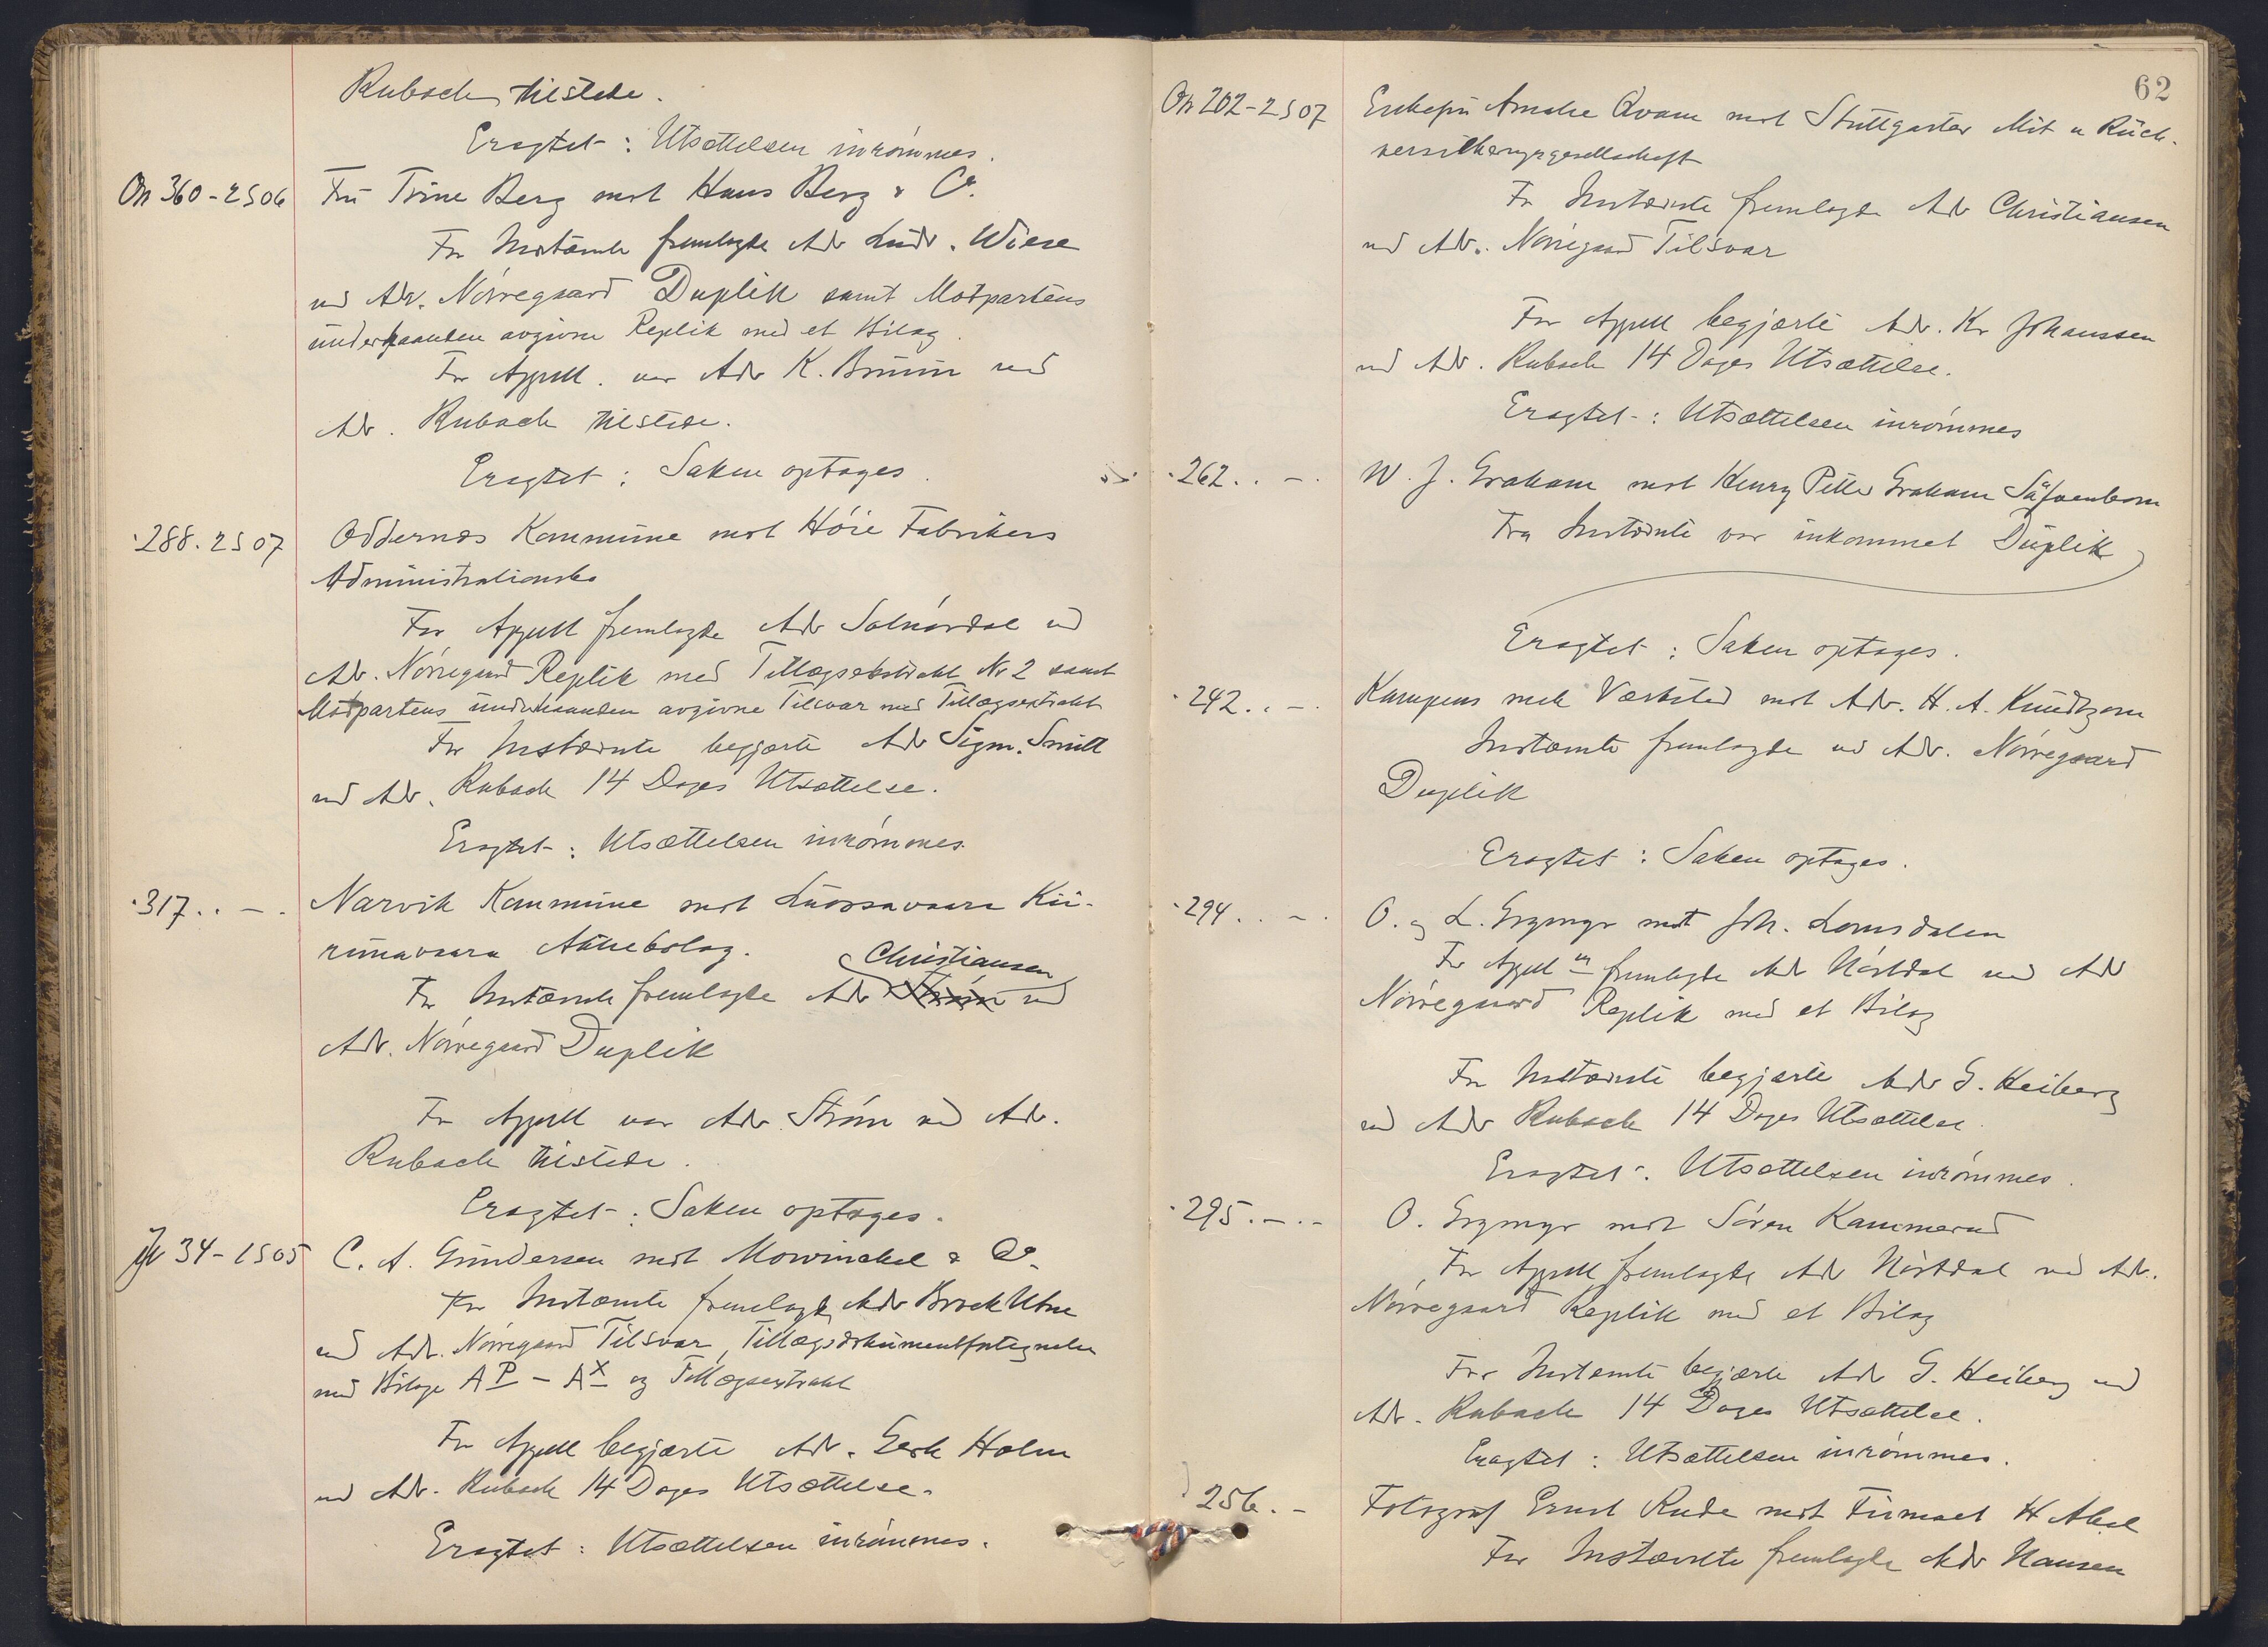 Rubach tilstede.
Eragtet: Utsættelsen inrømmes.
On 360 - 2 S 06 Fru Trine Berg mot Hans Berg & Co.
For Instævnte fremlagde Adv Ludv. Wiese
ved Adv. Nørregaard Duplik samt Motpartens
underhaanden avgivne Replik med et Bilag.
For Appell. var Adv K. Bruun ved
Adv. Rubach tilstede.
Eragtet: Saken optages.
288. 2 S 07 Oddernes Kommune mot Høie Fabrikers
Administrationsbo
For Appell fremlagde Adv Solnørdal ved
Adv. Nørregaard Replik med Tillægsekstrakt Nr 2 samt
Motpartens underhaanden avgivne Tilsvar med Tillægsextrakt
For Instævnte begjærte Adv Sigm. Smitt
ved Adv. Rubach 14 Dages Utsættelse.
Eragtet: Utsættelsen inrømmes.
317. . - . Narvik Kommune mot Luossavaara Kii-
runavaara Aktiebolag.
Christiansen
For Instævnte fremlagde Adv Strøm ved
Adv. Nørregaard Duplik
For Appell var Adv. Strøm ved Adv.
Rubach tilstede.
Eragtet: Saken optages.
34 - 1 S 05 C. A. Gundersen mot Mowinckel & Co.
For Instævnte fremlagde Adv Brock Utne
ved Adv. Nørregaard Tilsvar, Tillægsdokumentfortegnelse
med Bilage AP - AX og Tillægsextrakt
For Appell begjærte Adv. Gerh Holm
ved Adv. Rubach 14 Dages Utsættelse.
Eragtet: Utsættelsen inrømmes.
62
On 202 - 2 S 07 Enkefru Amalie Qvam mot Stuttgarter Mit u Rück-
versicherungsgesellschaft
For Instævnte fremlagde Adv Christiansen
ved Adv. Nørregaard Tilsvar
For Appell begjærte Adv. Kr Johanssen
ved Adv. Rubach 14 Dages Utsættelse.
Eragtet: Utsættelsen inrømmes
262. . - . W. J. Graham mot Henry Petter Graham
Fra Instævnte var inkommet Duplik
Eragtet: Saken optages.
242. . - . Kampens mek Værksted mot Adv. H. A. Knudtzon
Instævnte fremlagde ved Adv. Nørregaard
Duplik
Eragtet: Saken optages.
294. . - . O. og L. Grymyr mot Joh. Lomsdalen
For Appell fremlagde Adv Hørtdal ved Adv
Nørregaard Replik med et Bilag
For Instævnte begjærte Adv G. Heiberg
ved Adv Rubach 14 Dages Utsættelse.
Eragtet: Utsættelsen inrømmes.
295. - . - O. Grymyr mot Søren Kammerud
For Appell fremlagde Adv Hørtdal ved Adv.
Nørregaard Replik med et Bilag
For Instævnte begjærte Adv G. Heiberg ved
Adv. Rubach 14 Dages Utsættelse.
Eragtet: Utsættelsen inrømmes.
256. - Fotograf Ernst Rude mot Firmaet H Abel
For Instævnte fremlagde Adv Hansen